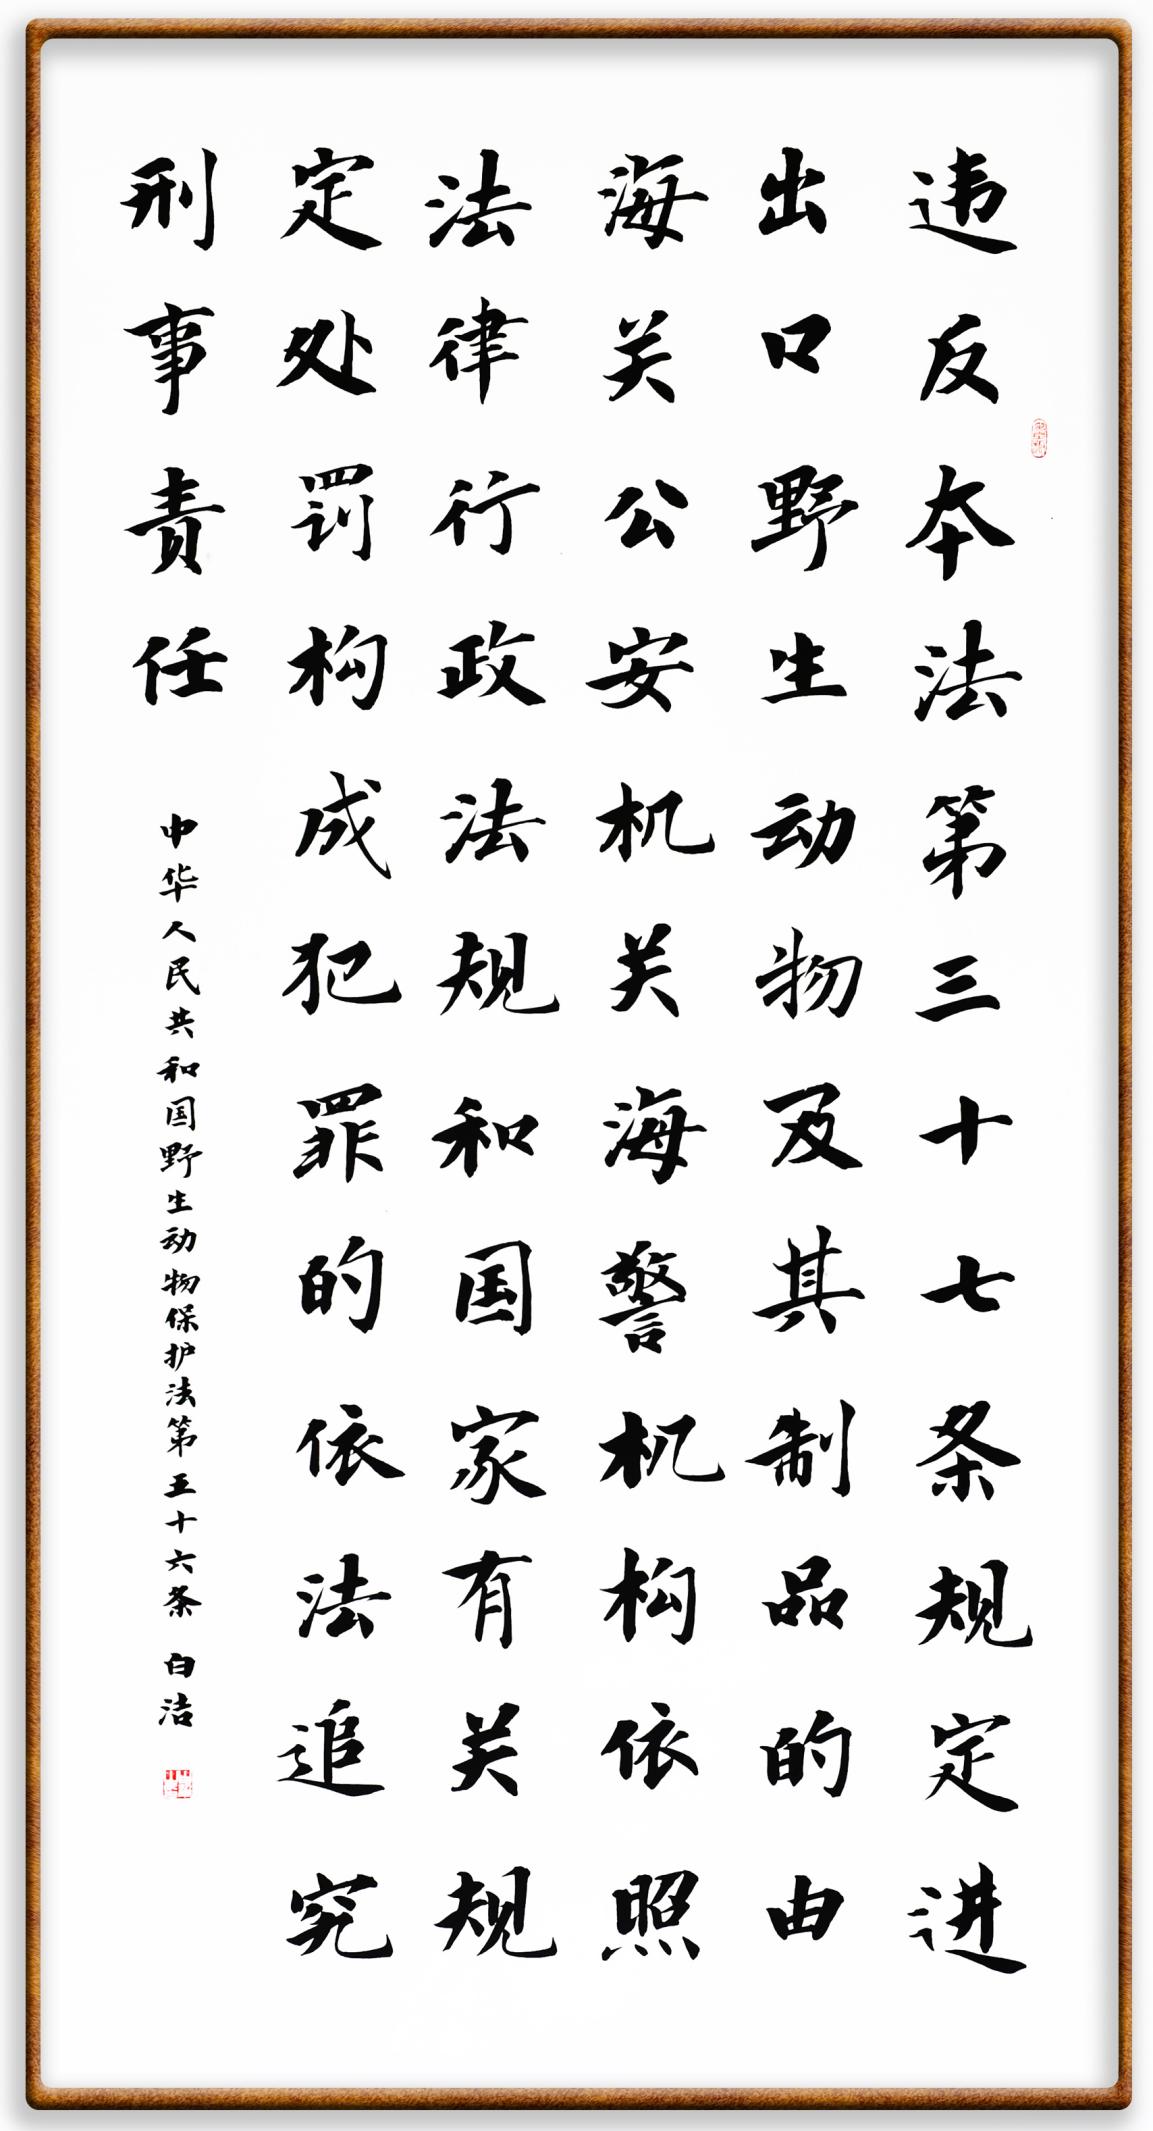 违反本法第三十七条规定进
出口野生动物及其制品的由
海关公安机关海警机构依照
法律行政法规和国家有关规
定处罚构成犯罪的依法追究
刑事责任
中华人民共和国野生动物保护法第五十六条 白洁